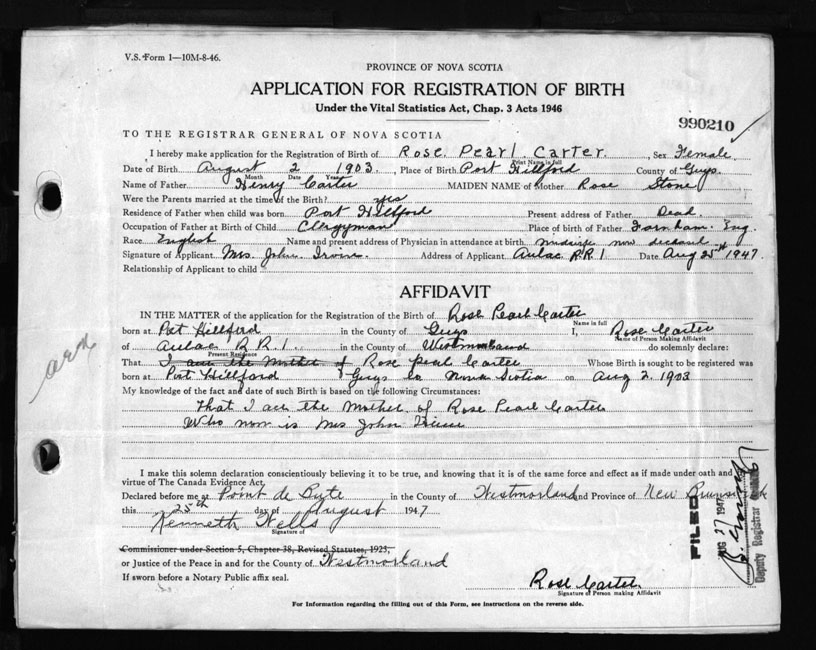 V.S. Form 1—10M-8-46.
PROVINCE OF NOVA SCOTIA
APPLICATION FOR REGISTRATION OF BIRTH
Under the Vital Statistics Act, Chap. 3 Acts 1946
990210
TO THE REGISTRAR GENERAL OF NOVA SCOTIA
I hereby make application for the Registration of Birth of Rose Pearl Carter. Sex Female
Print Name in full
Date of Birth August 2 1903, Place of Birth Port Hillford County of Guys.
Month Date Year
Name of Father Henry Carter MAIDEN NAME of Mother Rose Stone
Were the Parents married at the time of the Birth? yes
Residence of Father when child was born Port Hillford Present address of Father Dead.
Occupation of Father at Birth of Child Clergyman Place of birth of Father Farnham. Eng.
Race English Name and present address of Physician in attendance at birth midwife now
Signature of Applicant Mrs. John Address of Applicant Aulac R.R.1 Date Aug 25th 1947.
Relationship of Applicant to child
AFFIDAVIT
IN THE MATTER of the application for the Registration of the Birth of Rose Pearl Carter
Name in full
born at Port Hillford in the County of Guys I, Rose Carter
Name of Person Making Affidavit
of Aulac R.R.1. in the County of Westmorland do solemnly declare:
Present Residence
That I am the Mother of Rose Pearl Carter Whose Birth is sought to be registered was
born at Port Hillford Guys Co Nova Scotia on Aug 2. 1903
My knowledge of the fact and date of such Birth is based on the following Circumstances:
That I am the Mother of Rose Pearl Carter
Who now is Mrs John
I make this solemn declaration conscientiously believing it to be true, and knowing that it is of the same force and effect as if made under oath and by
virtue of The Canada Evidence Act.
Declared before me at Point de Bute in the County of Westmorland and Province of New Brunswick
this 25th day of August 1947
Kenneth Wells
Signature of
Commissioner under Section 5, Chapter 38, Revised Statutes, 1923,
or Justice of the Peace in and for the County of Westmorland
If sworn before a Notary Public affix seal.
Rose Carter
Signature of Person making Affidavit
For Information regarding the filling out of this Form, see instructions on the reverse side.
FILED
AUG 27 1947
Deputy Registrar